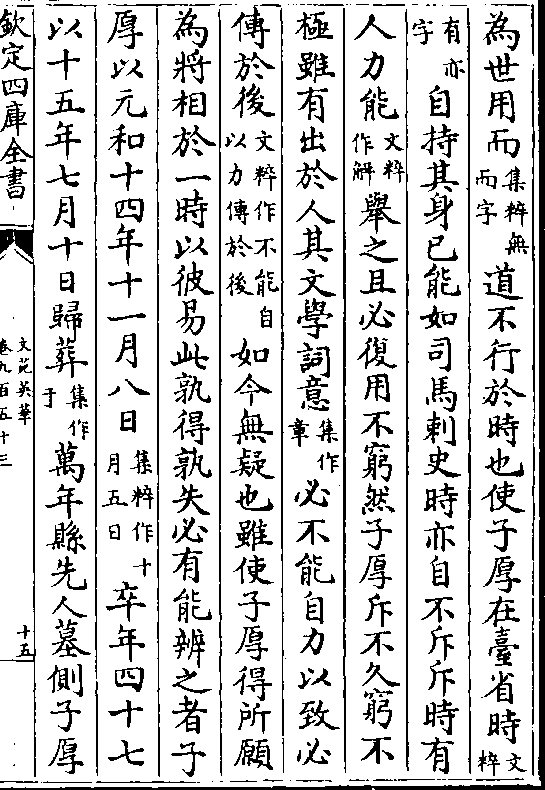 為世用而集粹無而字道不行於時也使子厚在臺省時文粹
有亦字自持其身已能如司馬刺史時亦自不斥斥時有
人力能文粹作解舉之且必復用不窮然子厚斥不久窮不
極雖有出於人其文學詞意集作章必不能自力以致必
傳於後文粹作不能自以力傳於後如今無疑也雖使子厚得所願
為將相於一時以彼易此孰得孰失必有能辨之者子
厚以元和十四年十一月八日集粹作十月五日卒年四十七
以十五年七月十日歸葬集作于萬年縣先人墓側子厚
欽定四庫全書
文苑英華
卷九百五十三
十五